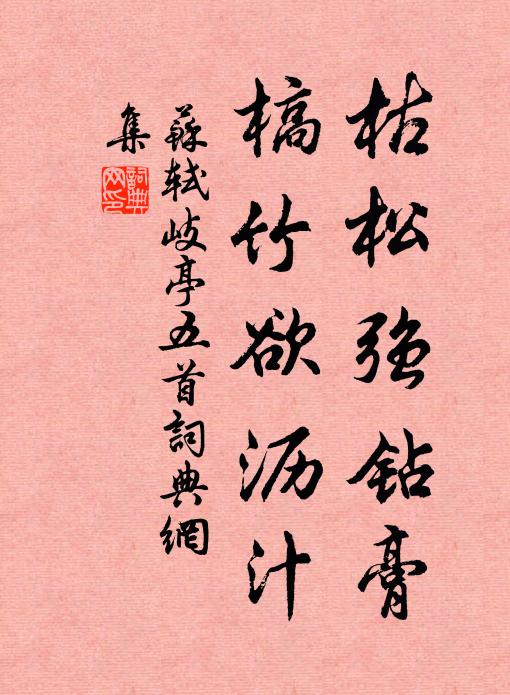 枯松强钻膏
槁竹欲沥汁
蘇軾岐亭五首詞典網
集
詞典
网印